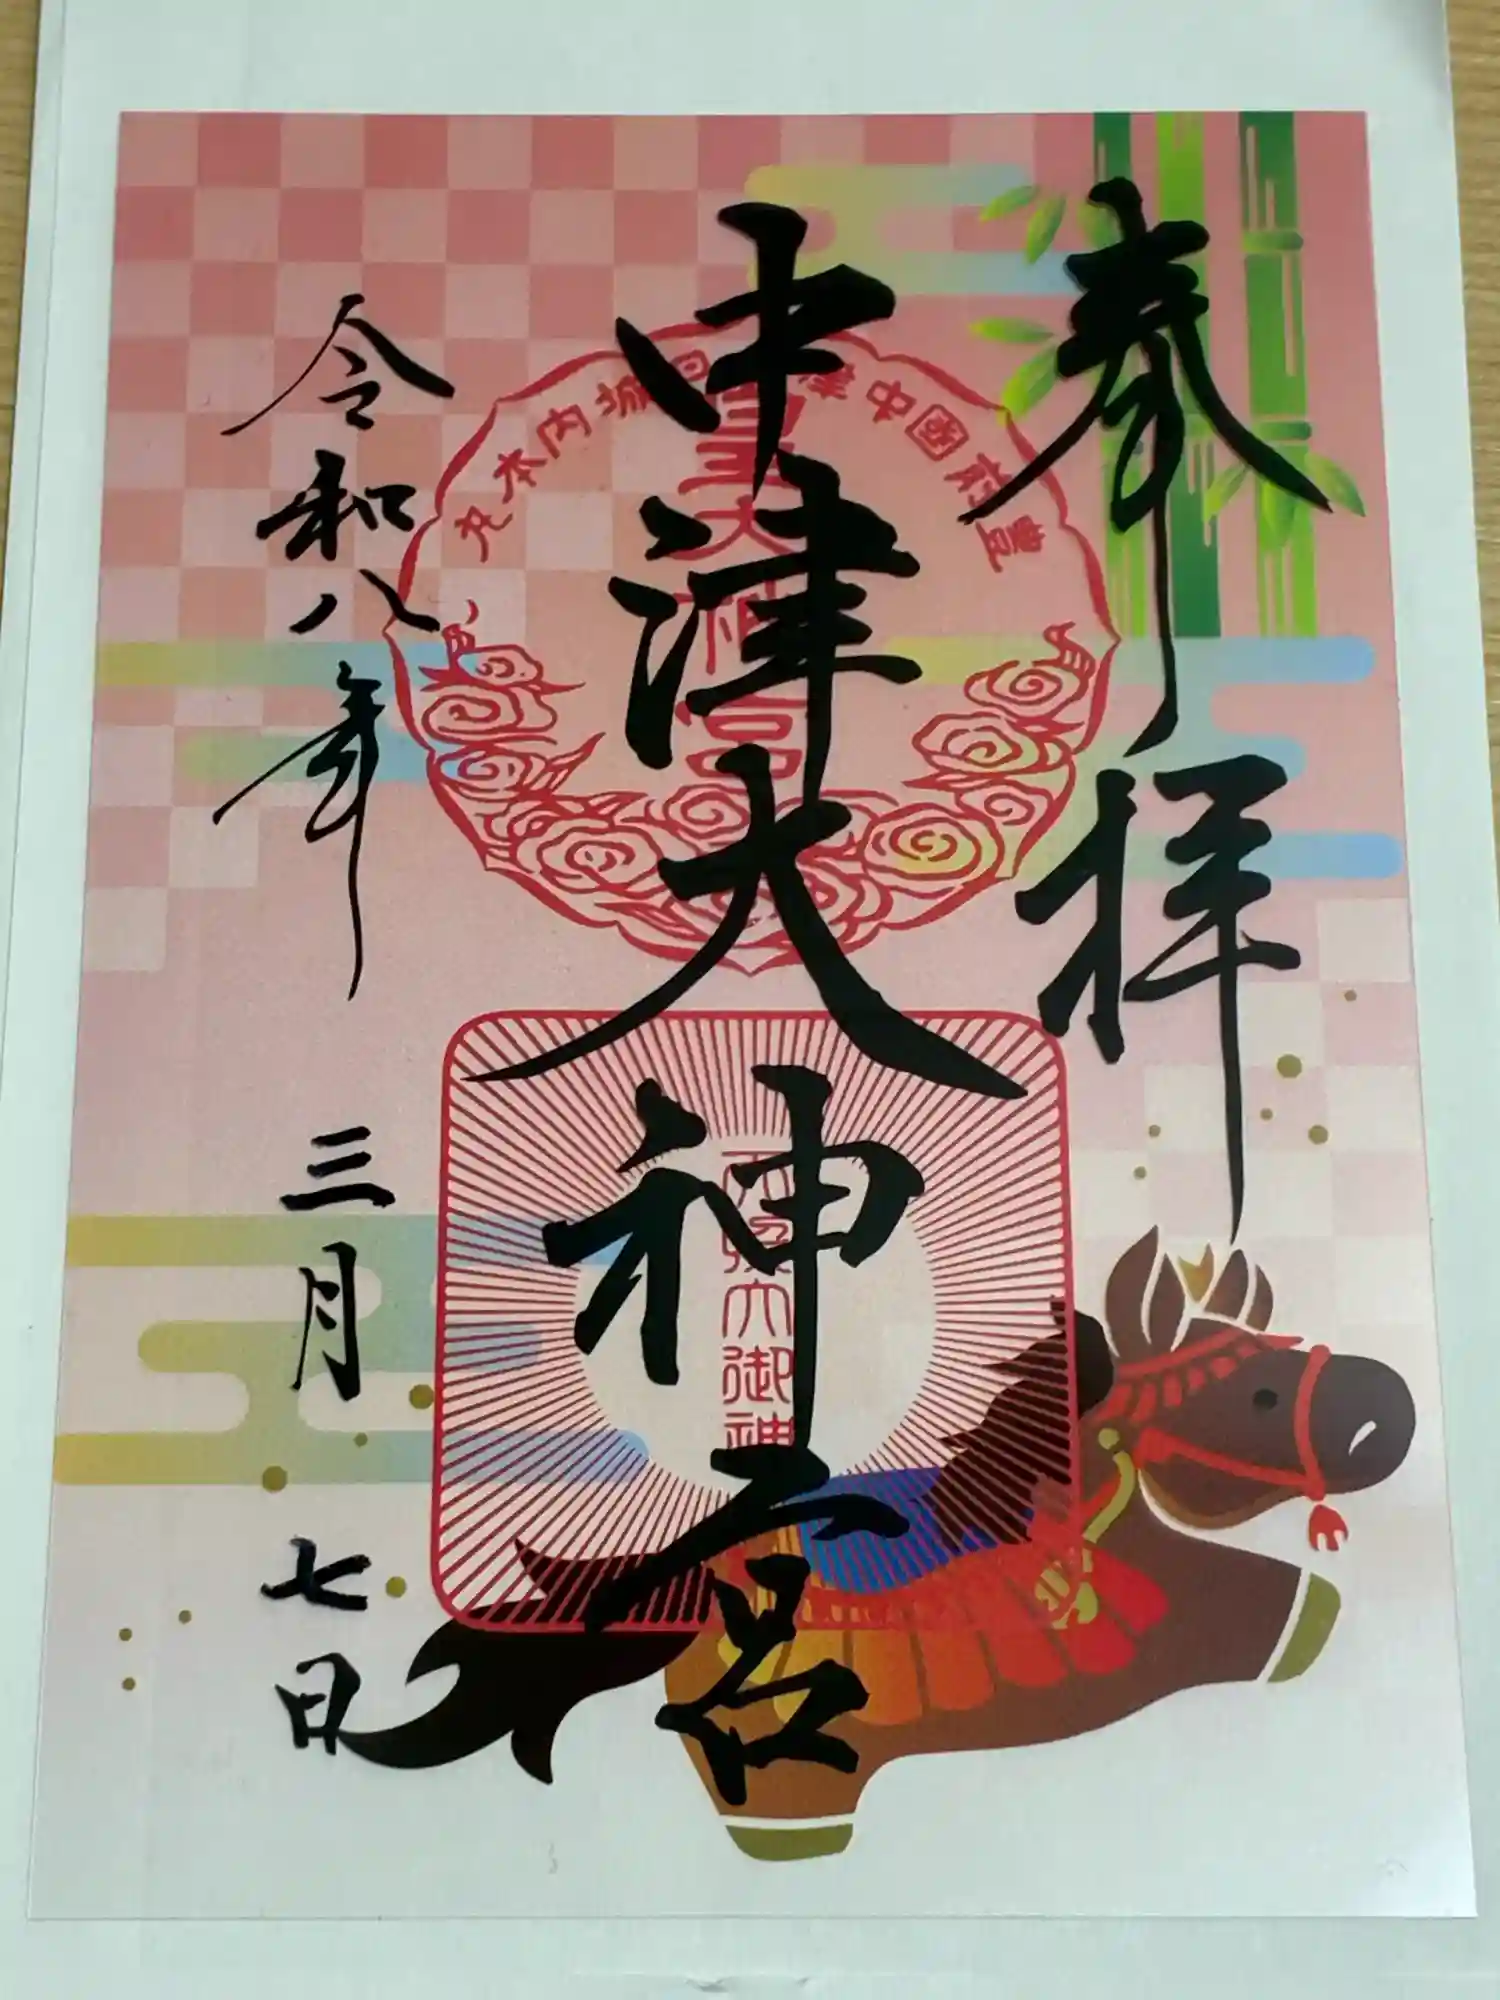 奉拝
中津大神宮
令和八年 三月 七日
豊府國中津
城内本丸
皇大神宮
大御神